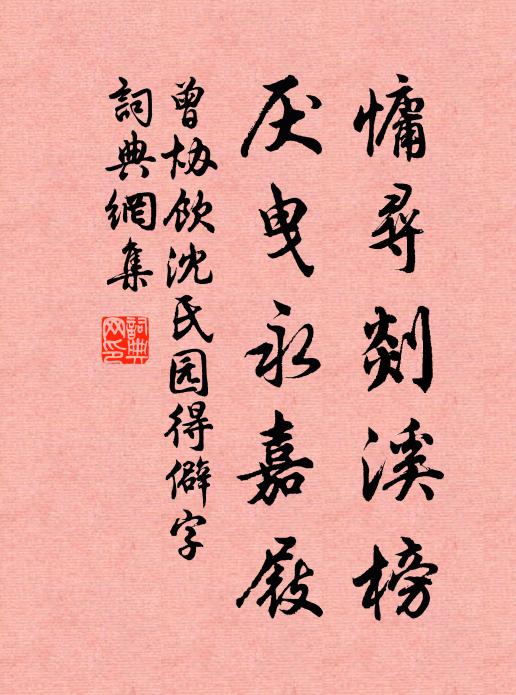 慵尋剡溪榜
厌曳永嘉屐
曾协飲沈氏园得僻字
詞典網集
詞典网印